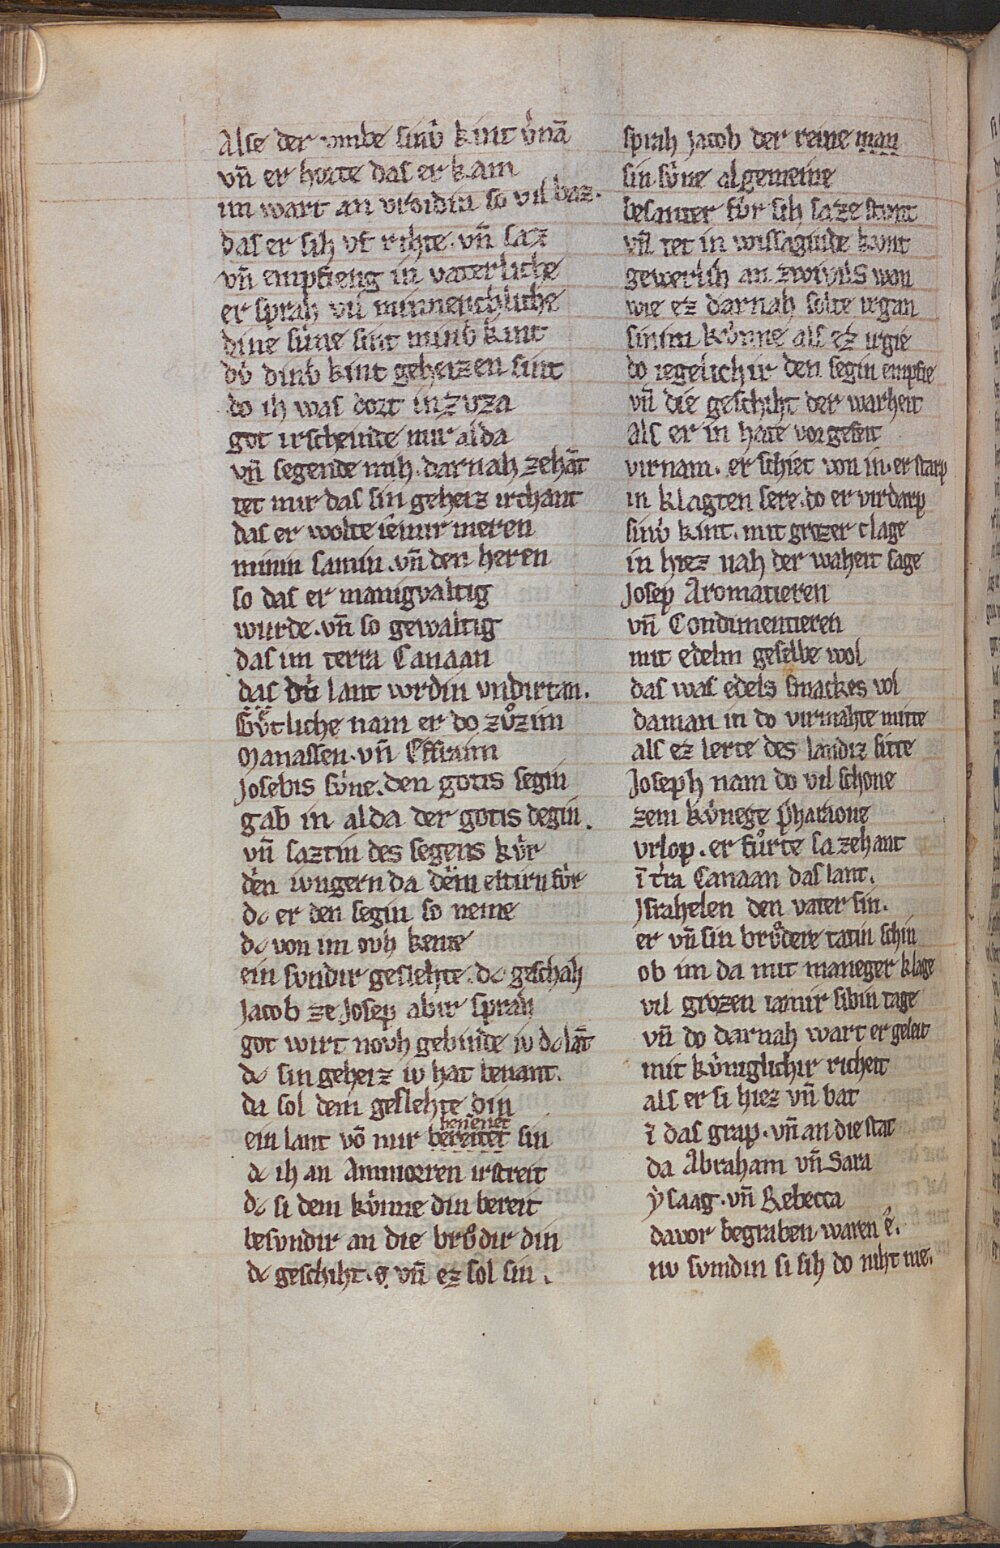 Alse der vmbe sinv̓ kint v̓nā
vn̄ er horte das er kam
im wart an vroidin so vil baz.
das er sih vf rihte. vn̄ saz
vn̄ empfieng in vaterliche
er sprah vil minnenchliche
dine sv̓ne sint minv̓ kint
dv̓ dinv̓ kint geheizen sint
do ih was dort in zvza
got irscheinde mir alda
vn̄ segende mih. darnah zehāt
tet mir das sin geheiz irchant
das er wolte iēmir meren
minin samin. vn̄ den heren
so das er manigvaltig
wurde. vn̄ so gewaltig
das im terra Canaan
das dv̓ lant wrdin vndirtan.
Gv̓tliche nam er do zůzim
Manassen. vn̄ Effraim
Josebis sv̓ne. den gotis segin
gab in alda der gotis degin.
vn̄ saztin des segens kv̓r
den iungern da dem eltirn fv̓r
dc er den segin so neme
dc von im ovh keme
ein svndir geslehte. dc geschah
Jacob ze Josep abir sprah
got wirt novh gebinde iv dc lāt
dc sin geheiz iv hat benant.
da sol dem geslehte din
benēnet
ein lant vō mir bereitet sin
dc ih an Ammorren irstreit
dc si dem kv̓nne din bereit
besvndir an die brůdir din
dc geschiht. vn̄ ez sol sin.
sprah Jacob der reine man
sin sv̓ne algemeine
besanter fv̓r sih sa ze stunt
vn̄ tet in wissaginde kvnt
gewerlih an zwivils won
wie ez darnah solte irgan
sinim kv̓nne als ez irgie
do iegelichir den segin empfie
vn̄ die geschiht der warheit
Als er in hate vorgeseit
virnam. er schiet von in. er starp
in klagten sere. do er virdarp
sinv̓ kint. mit grozer clage
in hiez nah der waheit sage
Josep Aromatieren
vn̄ Condimentieren
mit edelm geselbe wol
das was edels smackes vol
daman in do virmahte mitte
als ez lerte des landiz sitte
Joseph nam do vil schone
zem kv̓nege pharaone
vrlop. er fůrte sa zehant
ī t̄ra Canaan das lant.
Jsrahelen den vater sin.
er vn̄ sin brůdere tatin schin
ob im da mit maneger klage
vil grozen iamir sibin tage
vn̄ do darnah wart er geleit
mit kv̓niglichir richeit
als er si hiez vn̄ bat
ī das grap. vn̄ an die stat
da Abraham vn̄ Sara
ẏsaag. vn̄ Rebecca
davor begraben waren e.
nv svmdin si sih do niht me.